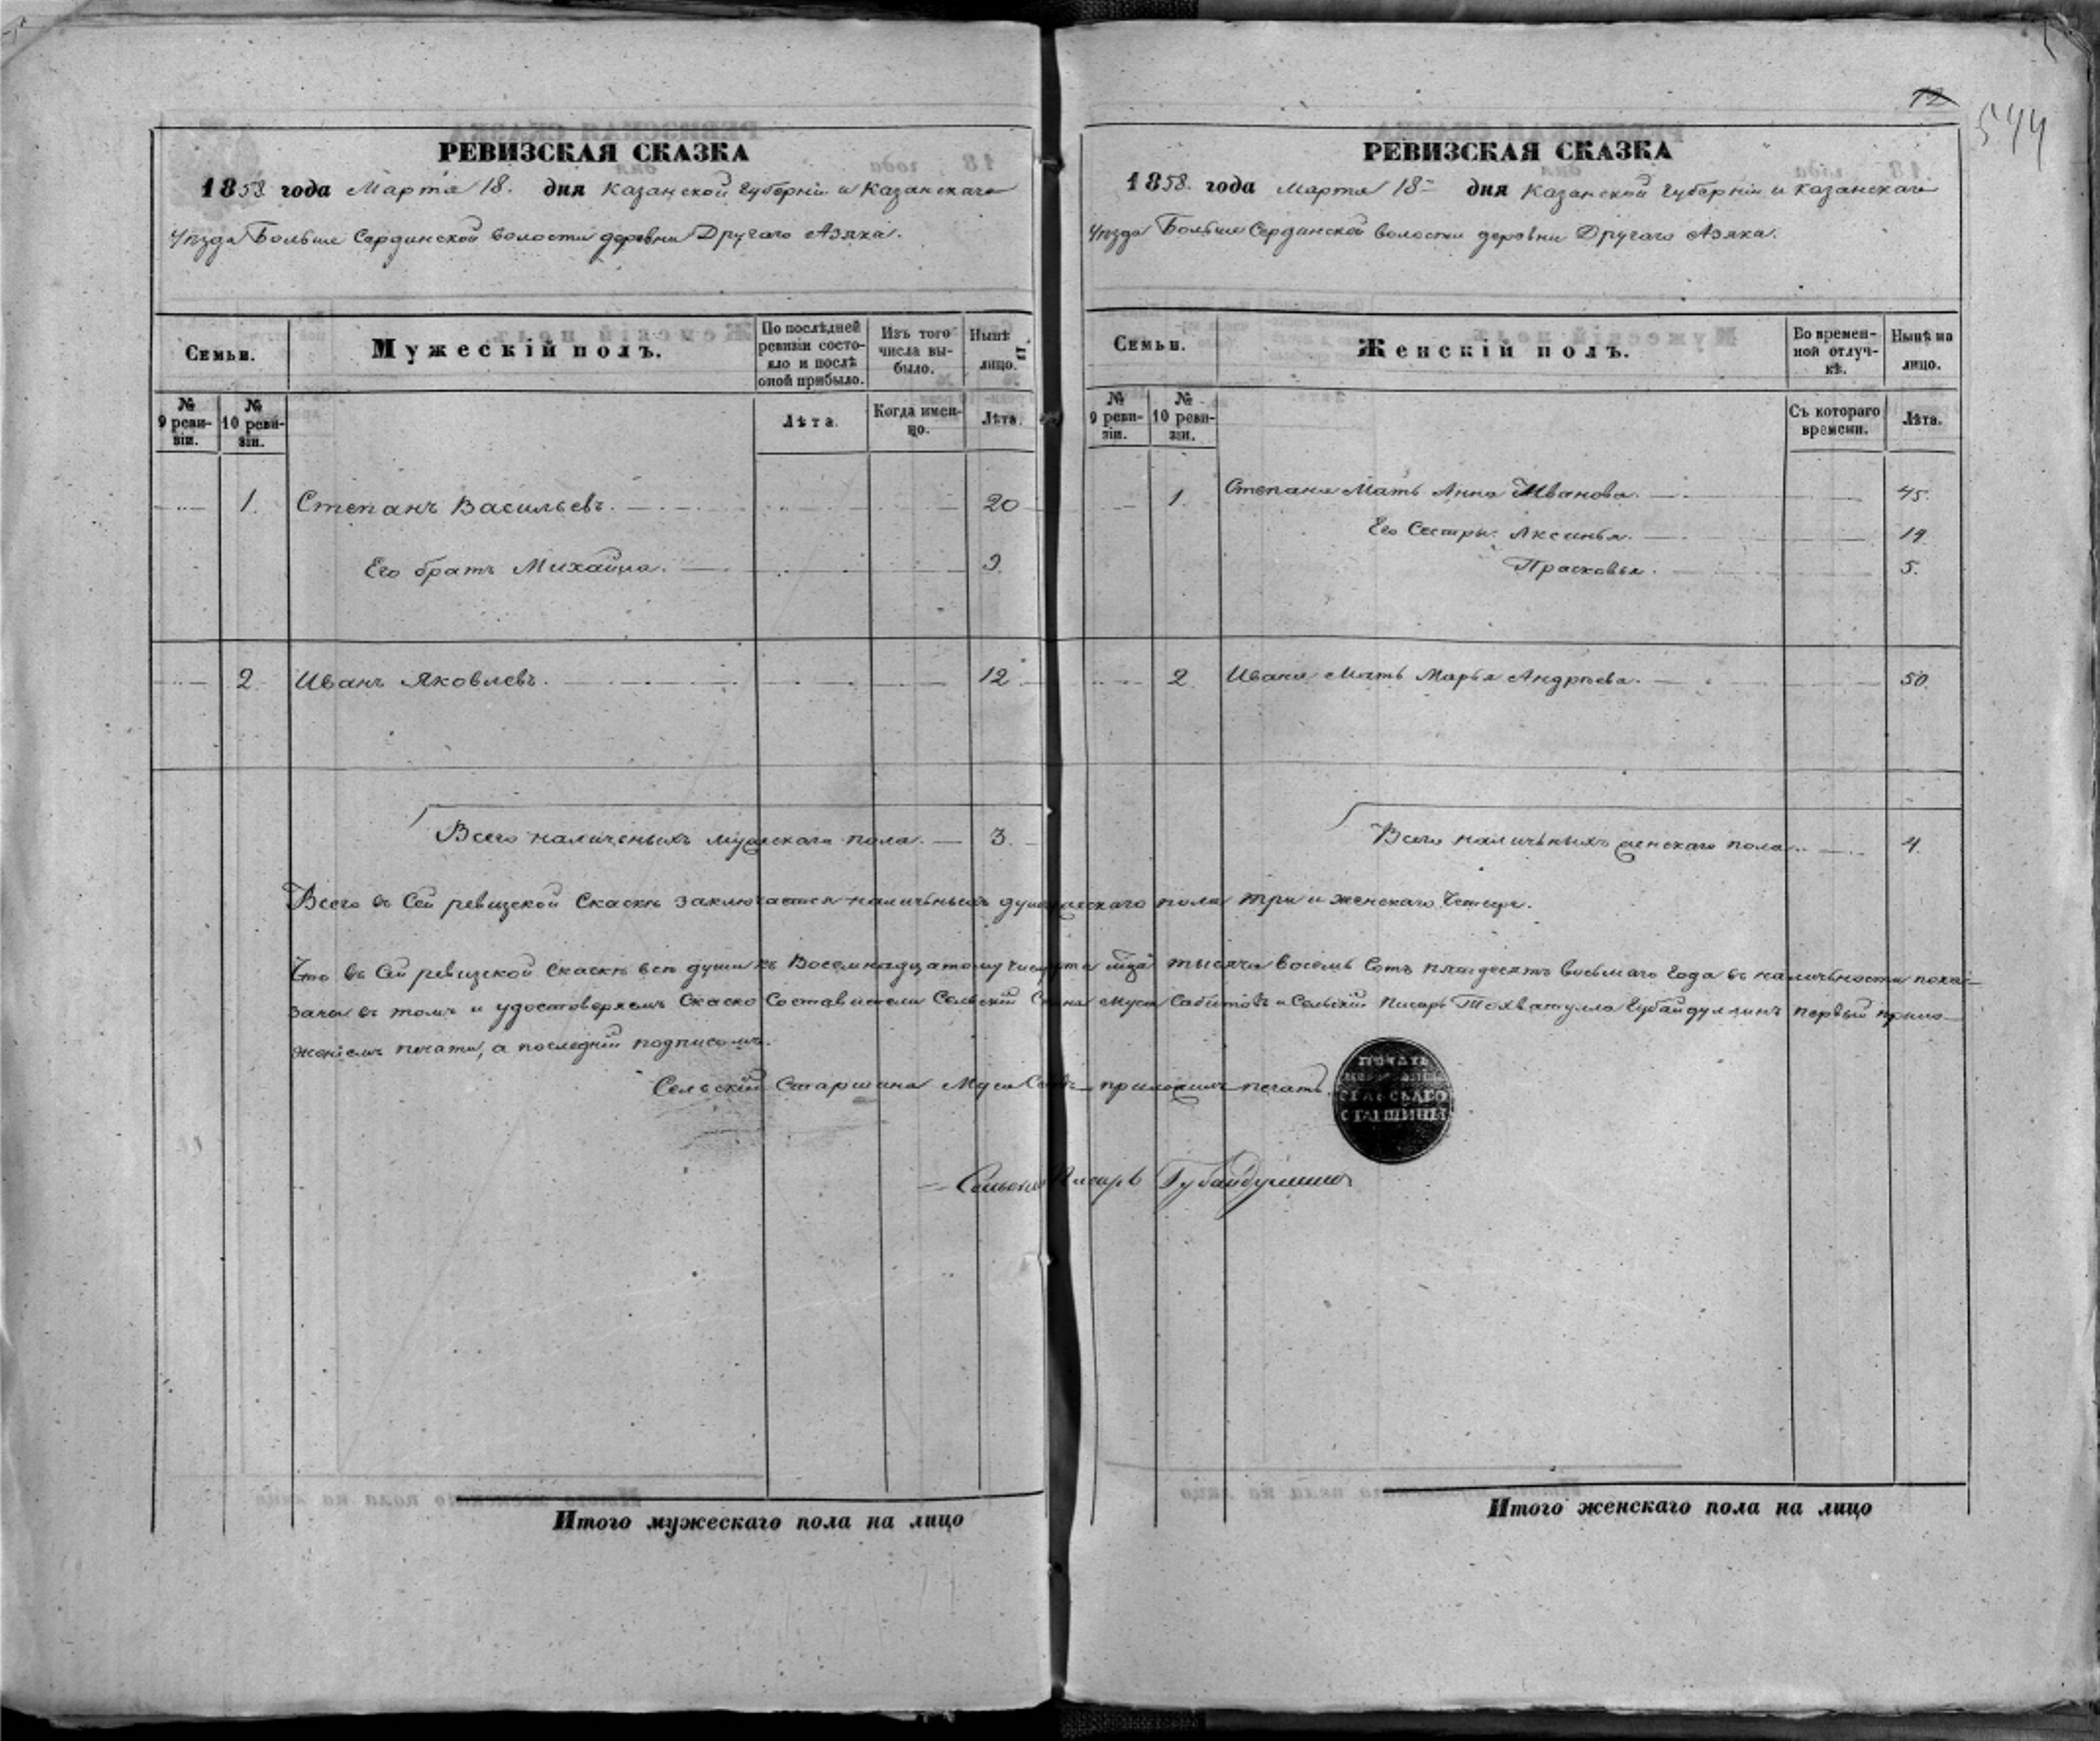 12
544
РЕВИЗСКАЯ СКАЗКА
1858 года Марта 18. дня Казанской Губернiи и Казанскаго
Уѣзда Больше Сердинской волости деревни Другаго Азяка.
Семьи.
Мужескiй полъ.
По послѣдней ревизiи состояло и послѣ оной прибыло.
Изъ того числа выбыло.
Нынѣ лицо.
№ 9 ревизiи.
№ 10 ревизiи.
Лѣта.
Когда именно.
Лѣта.
1. Степанъ Васильевъ. 20
Его братъ Михайла. 9.
2. Иванъ Яковлевъ. 12
Всего наличныхъ мужескаго пола. — 3.
РЕВИЗСКАЯ СКАЗКА
1858. года Марта 18 дня Казанской Губернiи и Казанскаго
Уѣзда Больше Сердинской волости деревни Другаго Азяка.
Семьи.
Женскiй полъ.
Во временной отлучкѣ.
Нынѣ на лицо.
№ 9 ревизiи.
№ 10 ревизiи.
Съ котораго времени.
Лѣта.
1. Степана Мать Анна Иванова. 45.
Его Сестры: Аксинья. 19
Прасковья. 5.
2 Ивана Мать Марья Андрѣева. 50.
Всего наличныхъ женскаго пола. 4.
Всего въ Сей ревизской Скаскѣ заключается наличныхъ душ пола три и женскаго Четыре.
Что въ Сей ревизской Скаскѣ всѣ души къ Восемнадцатому тысяча восемь Сотъ пятдесятъ восьмаго Года въ наличности пока-
заны въ томъ и удостоверяемъ Скаско Составители Сельскiй Муса Сабитовъ и Сельскiй Писарь Тохватулла Губайдуллинъ первый прило-
женiемъ печати, а последнiй подписомъ.
Сельскiй Старшина Муса приложилъ печать.
ПЕЧАТЬ
СЕЛЬСКАГО
СТАРШИНЫ
Сельскiй Писарь Губайдуллинъ
Итого мужескаго пола на лицо
Итого женскаго пола на лицо